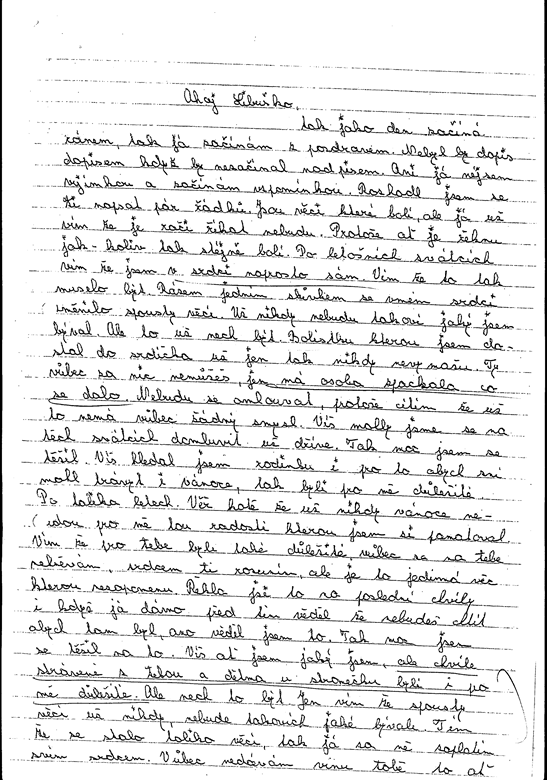 Ahoj Libuško,
tak jako den začíná
ránem, tak já začínám s pozdravem. Nebyl by dopis
dopisem když by nezačínal nadpisem. Ani já nejsem
vyjímkou a začínám vzpomínkou. Rozhodl jsem se
ti napsat pár řádků. Jsou věci které bolí, ale já už
vím že je radši říkat nebudu. Protože ať je řeknu
jak-koliv tak stejně bolí. Po letošních svátcích
vím že jsem v srdci naprosto sám. Vím že to tak
muselo být. Rázem jedním se vmém srdci
změnilo spousty věcí. Už nikdy nebudu takový jaký jsem
býval. Ale to už nech být. Bolístku kterou jsem do-
stal do srdíčka už jen tak nikdy nevymažu. Ty
vůbec za nic nemůžeš, jen má osoba spackala co
se dalo. Nebudu se omlouvat, protože cítím že už
to nemá vůbec žádný smysl. Víš mohly jsme se na
těch svátcích domluvit už dříve. Tak moc jsem se
těšil. Víš hledal jsem rodinku i pro to abych svi
mohl a vánoce, tak byli pro mě důležité.
Po tolika letech. Věř kotě že už nikdy vánoce ne-
budou pro mě tou radostí kterou jsem si pamatoval.
Vím že pro tebe byli také důležité vůbec se na tebe
nehněvám, srdcem ti rozumím, ale je to jedinná věc
kterou nezapomenu. Řekla jsi to na poslední chvíly
i když já dávno před tím věděl že nebudeš chtít
abych tam byl, ano věděl jsem to. Tak moc jsem
se těšil na to. Víš ať jsem jaký jsem, ale chvíle
strávené s tebou a dětma u stromečku byli i pro
mě důležité. Ale nech to být. Jen vím že spousty
věcí už nikdy, nebude takových jaké bývali. Tím
že se stalo tolika věcí, tak já za ně zaplatím
svím srdcem. Vůbec nedávám vinu tobě to ať